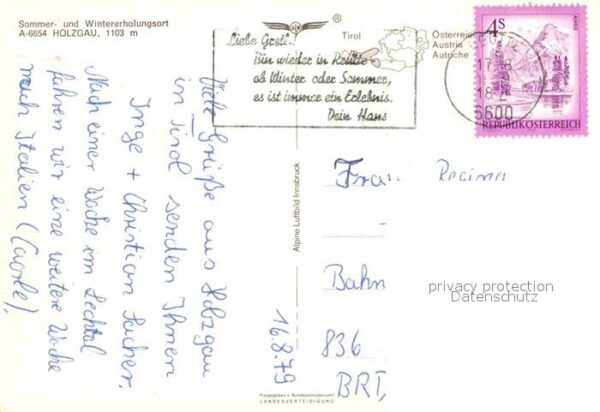 Sommer- und Wintererholungsort
A-6654 HOLZGAU, 1103 m
Viele Grüße aus Holzgau
in Tirol senden Ihnen
Inge + Christian
Nach einer Woche im Lechtal
fahren wir eine weitere Woche
nach Italien (Caorle).
16.8.79
Alpine Luftbild Innsbruck
Freigegeben v. Bundesministerium f.
LANDESVERTEIDIGUNG
®
Tirol
Österreich
Austria
Autriche
Liebe Gretl!
Bin wieder in Reutte -
ob Winter oder Sommer,
es ist immer ein Erlebnis.
Dein Hans
6600
4S
REPUBLIK ÖSTERREICH
Frau Regina
Bahn
836
BRD
privacy protection
Datenschutz